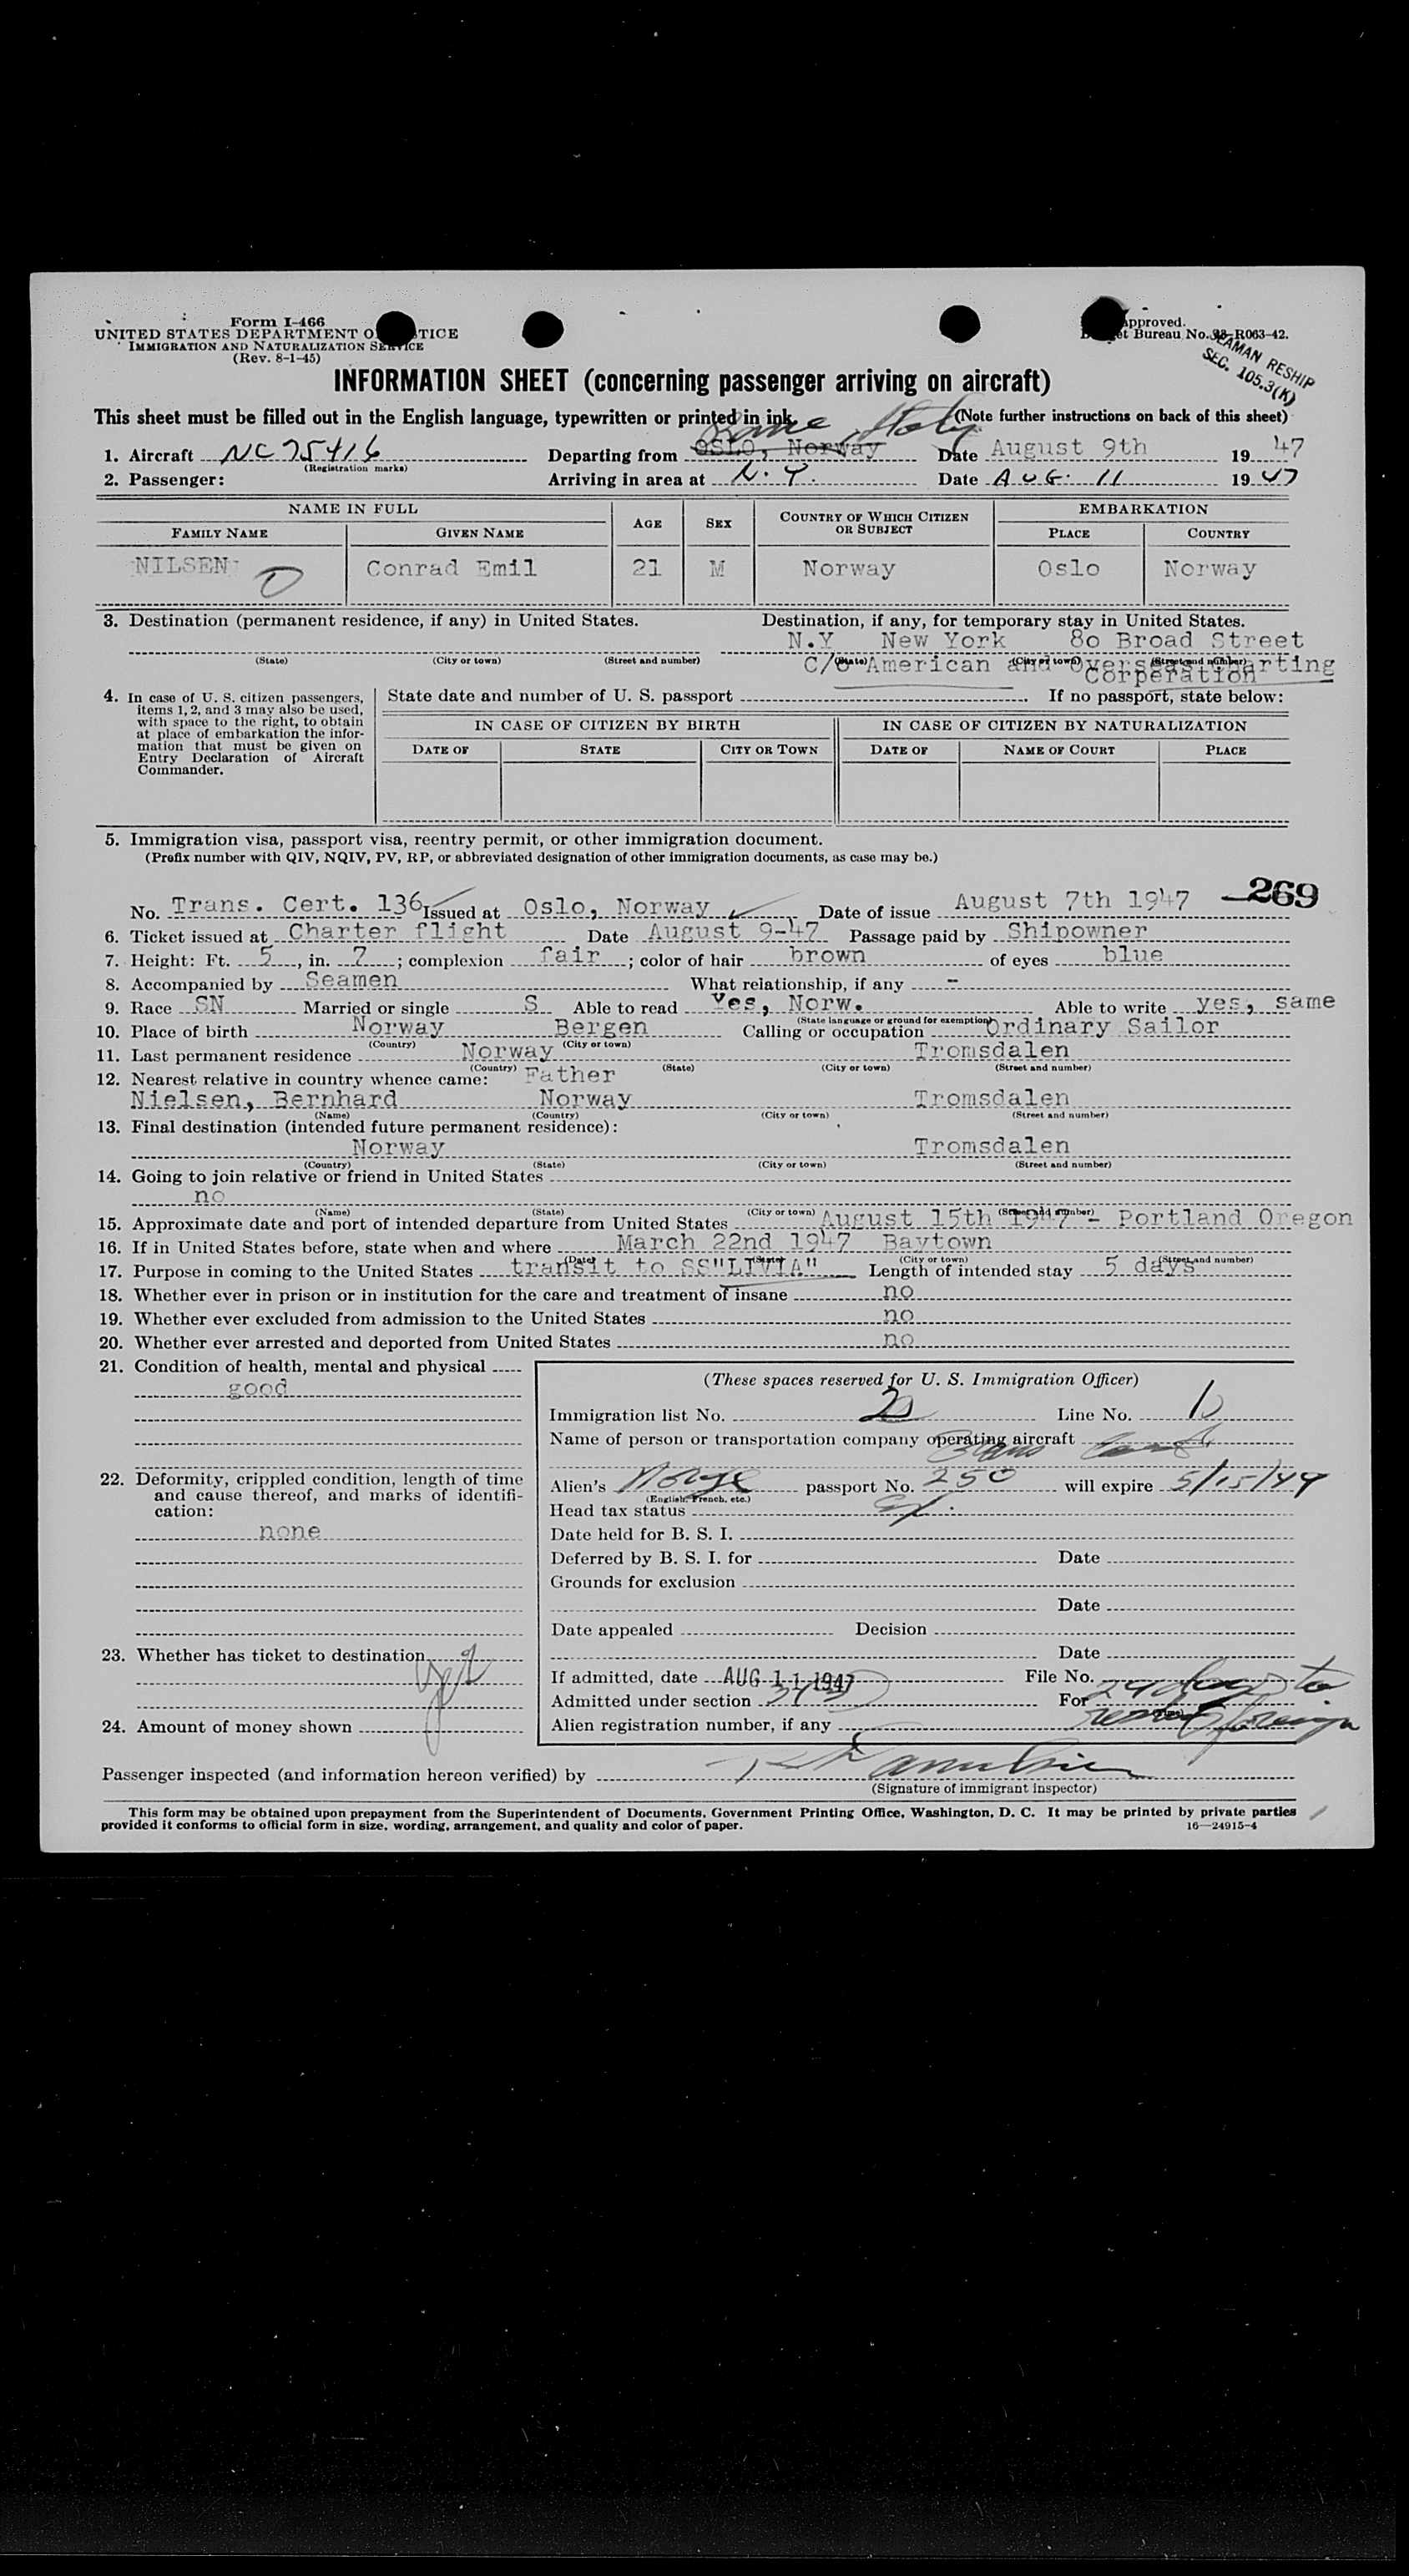 Form I-466
UNITED STATES DEPARTMENT O TICE
IMMIGRATION AND NATURALIZATION SERVICE
(Rev. 8-1-45)
pproved.
et Bureau No. R063-42.
SEAMAN RESHIP
SEC. 105.3(K)
INFORMATION SHEET (concerning passenger arriving on aircraft)
This sheet must be filled out in the English language, typewritten or printed in ink. (Note further instructions on back of this sheet)
Rome, Italy
1. Aircraft NC 75416 Departing from OSLO, Norway Date August 9th 1947
(Registration marks)
2. Passenger: Arriving in area at N.Y. Date AUG. 11 1947
NAME IN FULL AGE SEX COUNTRY OF WHICH CITIZEN OR SUBJECT EMBARKATION
FAMILY NAME GIVEN NAME PLACE COUNTRY
NILSEN Conrad Emil 21 M Norway Oslo Norway
3. Destination (permanent residence, if any) in United States. Destination, if any, for temporary stay in United States.
N.Y New York 80 Broad Street
(State) (City or town) (Street and number) (State) (City or town) (Street and number)
C/O American and Overseas Charting
Corperation
4. In case of U. S. citizen passengers, items 1, 2, and 3 may also be used, with space to the right, to obtain at place of embarkation the information that must be given on Entry Declaration of Aircraft Commander.
State date and number of U. S. passport If no passport, state below:
IN CASE OF CITIZEN BY BIRTH IN CASE OF CITIZEN BY NATURALIZATION
DATE OF STATE CITY OR TOWN DATE OF NAME OF COURT PLACE
5. Immigration visa, passport visa, reentry permit, or other immigration document.
(Prefix number with QIV, NQIV, PV, RP, or abbreviated designation of other immigration documents, as case may be.)
269
No. Trans. Cert. 136 Issued at Oslo, Norway Date of issue August 7th 1947
6. Ticket issued at Charter flight Date August 9-47 Passage paid by Shipowner
7. Height: Ft. 5, in. 7; complexion fair; color of hair brown of eyes blue
8. Accompanied by Seamen What relationship, if any -
9. Race SN Married or single S Able to read Yes, Norw. Able to write yes, same
(State language or ground for exemption)
10. Place of birth Norway Bergen Calling or occupation Ordinary Sailor
(Country) (City or town)
11. Last permanent residence Norway Tromsdalen
(Country) (State) (City or town) (Street and number)
12. Nearest relative in country whence came: Father
Nielsen, Bernhard Norway Tromsdalen
(Name) (Country) (City or town) (Street and number)
13. Final destination (intended future permanent residence):
Norway Tromsdalen
(Country) (State) (City or town) (Street and number)
14. Going to join relative or friend in United States
no
(Name) (State) (City or town) (Street and number)
15. Approximate date and port of intended departure from United States August 15th 1947 - Portland Oregon
16. If in United States before, state when and where March 22nd 1947 Baytown
(Date) (State) (City or town) (Street and number)
17. Purpose in coming to the United States transit to SS"LIVIA" Length of intended stay 5 days
18. Whether ever in prison or in institution for the care and treatment of insane no
19. Whether ever excluded from admission to the United States no
20. Whether ever arrested and deported from United States no
21. Condition of health, mental and physical
good
22. Deformity, crippled condition, length of time and cause thereof, and marks of identification:
none
23. Whether has ticket to destination yes
24. Amount of money shown
(These spaces reserved for U. S. Immigration Officer)
Immigration list No. Line No.
Name of person or transportation company operating aircraft
Alien's Norge passport No. 250 will expire 5/15/49
(English, French, etc.)
Head tax status
Date held for B. S. I.
Deferred by B. S. I. for Date
Grounds for exclusion
Date
Date appealed Decision
Date
If admitted, date AUG 11 1947 File No.
Admitted under section 3(5) For 29 days to
reship foreign
Alien registration number, if any
Passenger inspected (and information hereon verified) by
(Signature of immigrant inspector)
This form may be obtained upon prepayment from the Superintendent of Documents, Government Printing Office, Washington, D. C. It may be printed by private parties
provided it conforms to official form in size, wording, arrangement, and quality and color of paper. 16—24915-4